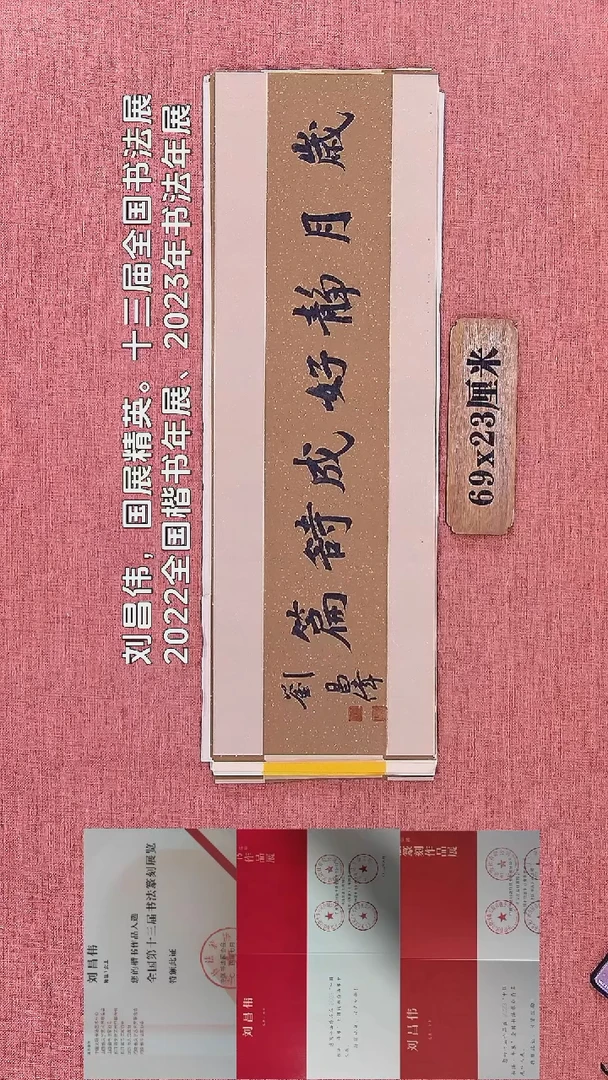 刘昌伟，国展精英。十三届全国书法展
2022全国楷书年展、2023年书法年展
歲月静好成詩篇
劉昌偉
69x23厘米
刘昌伟
您的楷书作品入选
全国第十三届书法篆刻展览
特颁此证
刘昌伟
作品展
刘昌伟
篆刻作品展